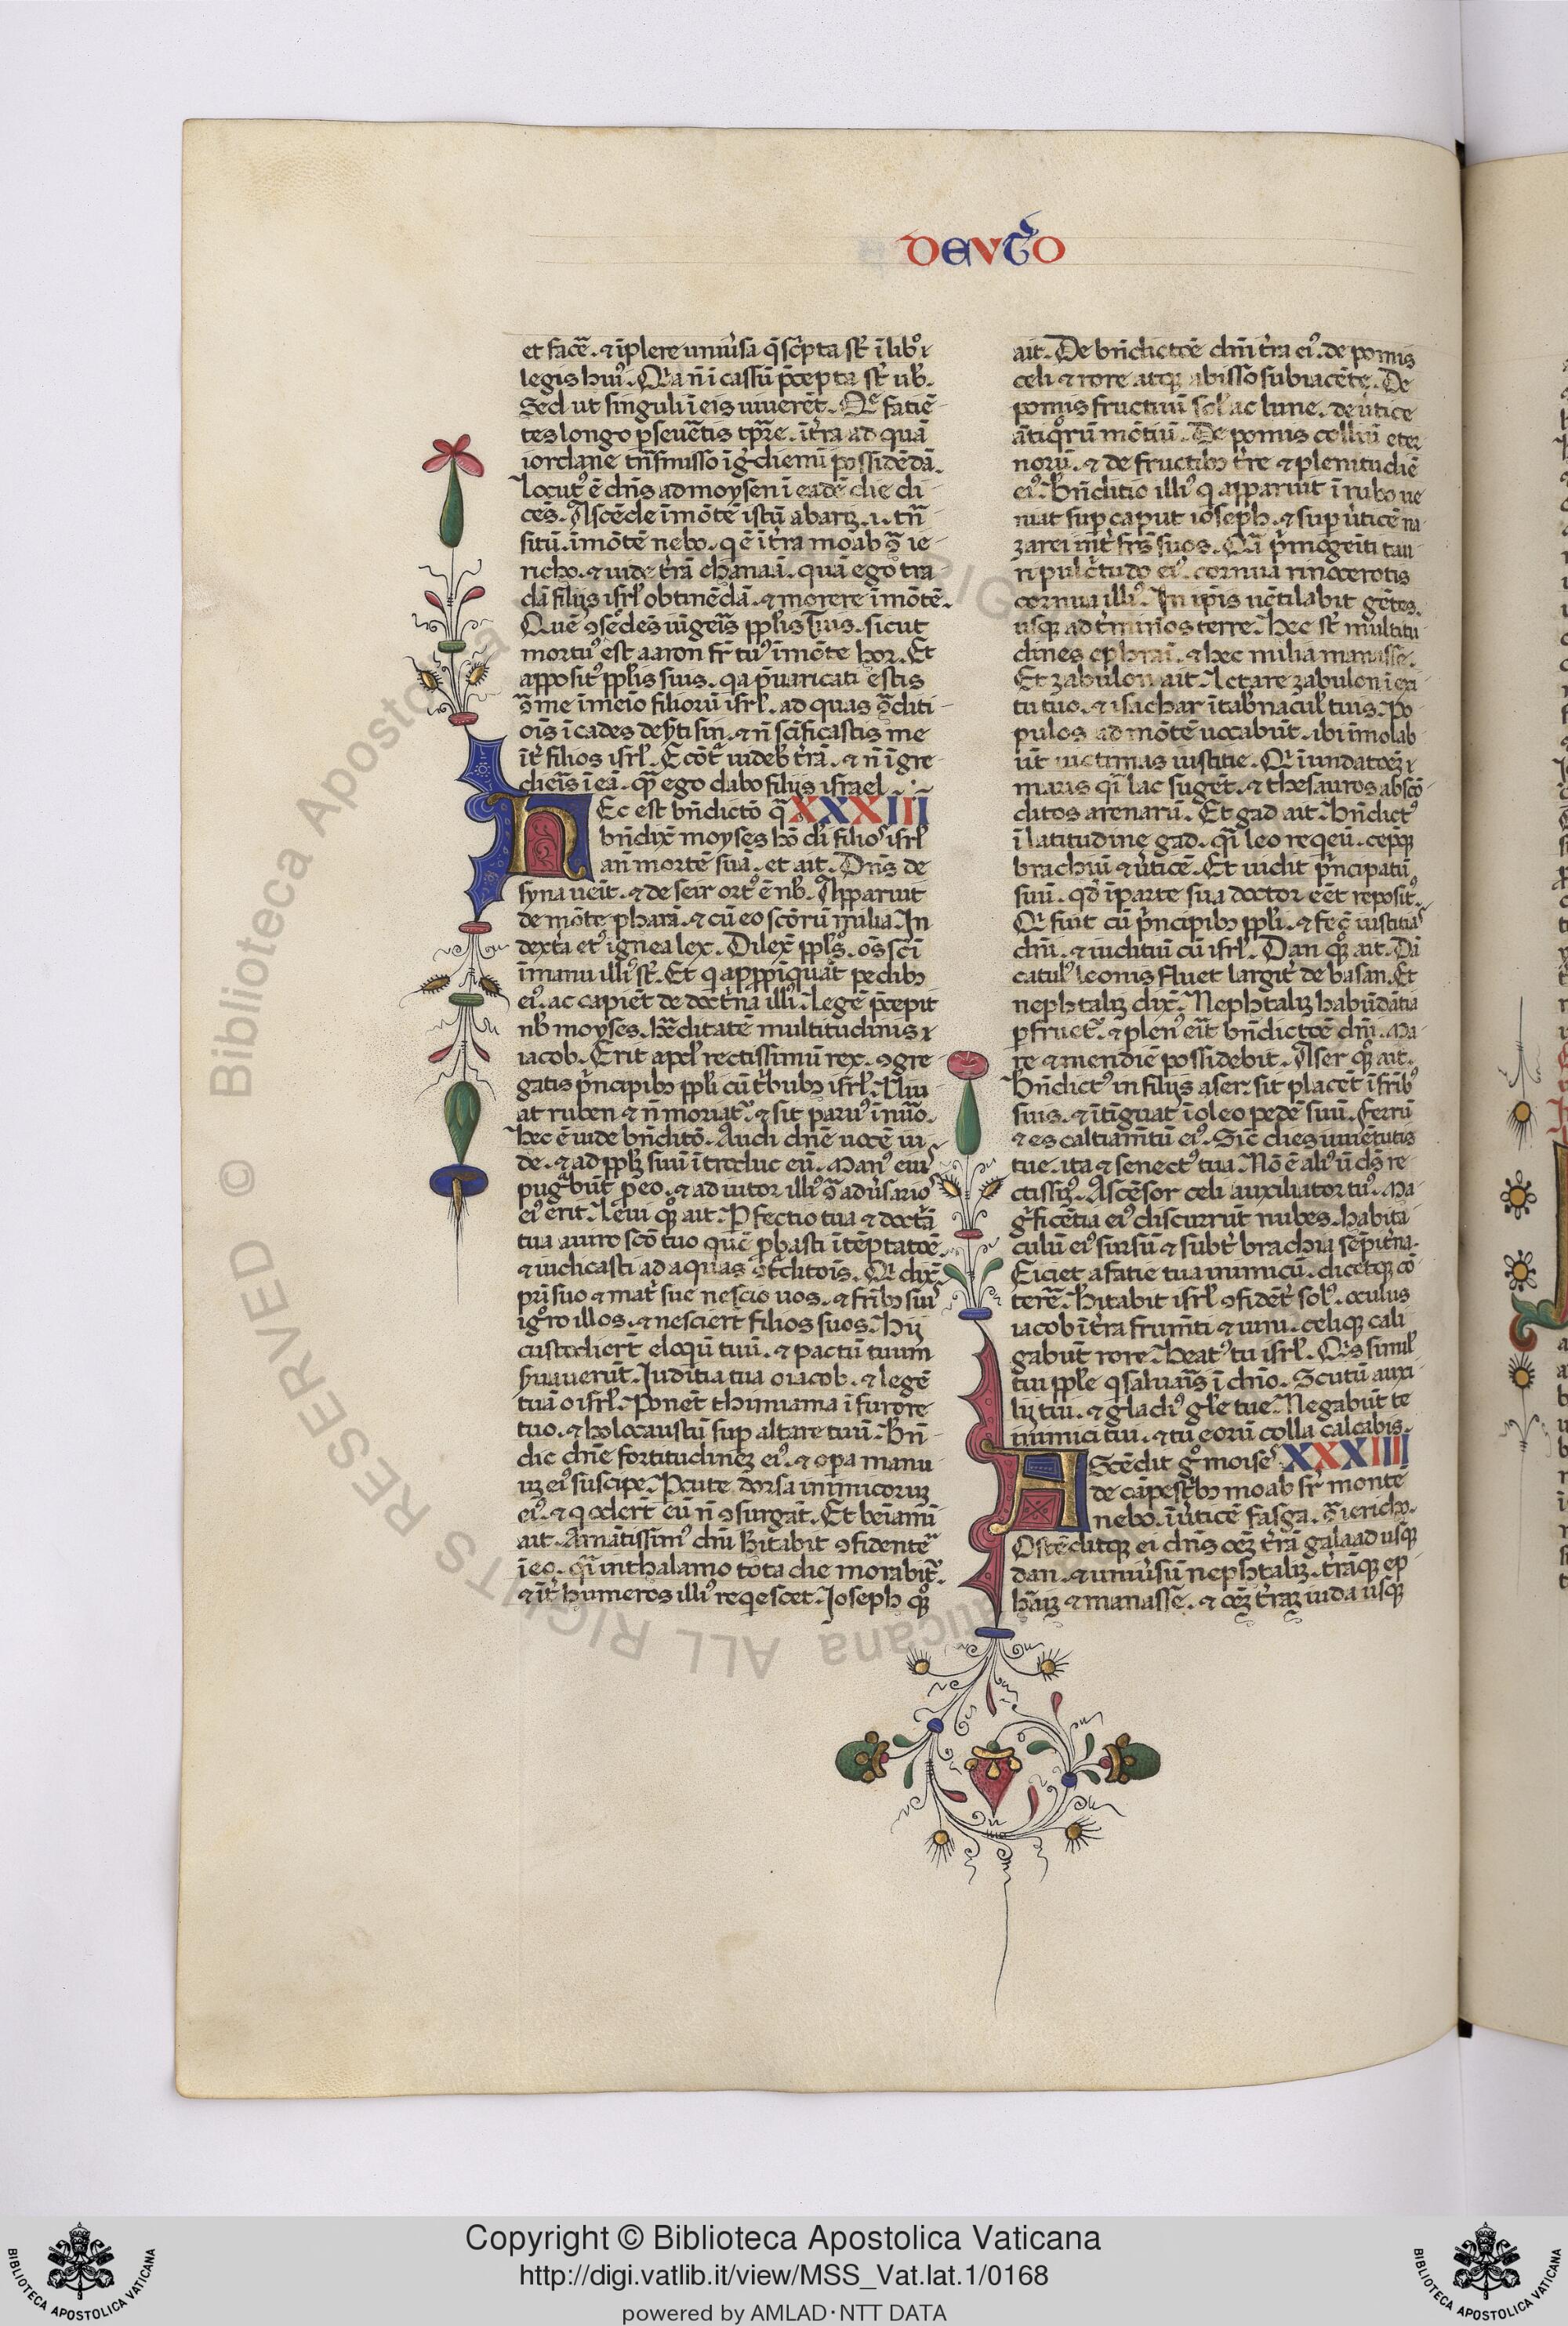 DEVTO
et facē. ⁊ īplere uniũsa q̄ sc̄pta st̄ ī libꝰ ⁊
legis huiꝰ. Qa n̄ ī cassū p̄cepta st̄ ub̄.
Sed ut singuli ī eis uiuerēt. Qᵉ fatiē
tes longo pseuētis tp̄re. ī tr̄a ad quā
iordane trn̄smisso īgdiemī possidēdā.
Locutꝰ ē dn̄s ad moysen ī eadē die di
cēs. Ascēde ī mōtē istū abarꝫ .i. trn̄
situ. ī mōtē nebo. q ē ī tr̄a moab 9ᵃ ie
richo. ⁊ uide tr̄ā chanaā. quā ego tra
dā filijs isrl̄ obtinēdā. ⁊ morere ī mōtē.
Quē 9scēdēs iūgeris pplis tuis. sicut
mortuꝰ est aaron fr̄ tuꝰ ī mōte hor. Et
appositꝰ pplis suis. qa p̄uaricati estis
9ᵃ me ī mēio filiorū isrl̄. ad quas 9ᵃditi
oīs ī cades deẏti sin. ⁊ n̄ sc̄ificastis me
īt̄ filios isrl̄. Ecōt uideb̄ tr̄ā. ⁊ n̄ īgre
dieris ī eā. qᵃ ego dabo filijs israel.
Ec est bn̄dictō qᵃ XXXIII
bn̄dix̄ moyses hō di filioꝰ isrl̄
an̄ mortē suā. et ait. Dn̄s de
syna ueit̄. ⁊ de seir ortꝰ ē nb̄. Apparuit
de mōte pharā. ⁊ cū eo sc̄ōrū milia. In
dext̄a eiꝰ ignea lex. Dilex̄ pplōs. oēs sc̄i
ī manu illiꝰ st̄. Et q appp̄īquāt pedibꝫ
eiꝰ. accapiēt de doct̄na illiꝰ. Legē p̄cepit
nb̄ moyses. h̄editatē multitudinis ⁊
iacob. Erit apd̄ rectissimū rex. 9gre
gatis p̄ncipibꝫ ppli cū t̄bubꝫ isrl̄. Viu
at ruben ⁊ n̄ moriatᵘ. ⁊ sit paruꝰ ī nūo.
hec ē iude bn̄dictō. Audi dn̄e uocē iu
de. ⁊ ad pplꝫ suū ītroduc eū. Manꝰ eiuꝰ
pugᵃbūt p eo. ⁊ adiutor illiꝰ 9ᵃ aduersarioꝰ
eiꝰ erit. Leui qꝫ ait. Pfectio tua ⁊ doct̄a
tua a uiro sc̄ō tuo quē pbasti ī tēptatōē.
⁊ iudicasti ad aquas 9t̄ditōis. Qi dix̄
pr̄i suo ⁊ mat̄ sue nescio uos. ⁊ frībꝫ suiꝰ
igᵒro illos. ⁊ nescier̄t filios suos. Hij
custodier̄t eloqū tuū. ⁊ pactū tuum
s̄uauer̄ūt. Juditia tua o iacob. ⁊ legē
tuā o isrl̄. Ponēt thimiama ī furore
tuo. ⁊ holocaustū sup altare tuū. Bn̄
dic dn̄e fortitudinꝫ eiꝰ. ⁊ opa manu
uꝫ eiꝰ suscipe. Pcute dorsa inimicoruꝫ
eiꝰ. ⁊ q oder̄t eū n̄ 9surgāt. Et beīamī
ait. Amātissimꝰ dn̄i h̄itabit 9fidentᵉ
ī eo. qᵃī in thalamo tota die morabitᵘ.
⁊ īt̄ humeros illiꝰ reqescet. Joseph qꝫ
ait. De bn̄dictōē dn̄i tr̄a eiꝰ. de pomis
celi ⁊ rore atqꝫ abisso subiacēte. De
pomis fructuū sol̄ ac lune. de ũtice
ātiqᵒrū mōtiū. De pomis colliū eter
norū. ⁊ de fructibꝫ t̄re ⁊ plenitudiē
eiꝰ. Bn̄ditio illiꝰ q apparuit ī rubo ue
niat sup caput ioseph. ⁊ sup ũticē na
zarei int̄ frēs suos. Qᵃī p̄mogēiti tau
ri pulc̄tudo eiꝰ. cornua rinocerotis
cornua illiꝰ. In ip̄is uētilabit gētes.
usqꝫ ad t̄minos terre. Hec st̄ multitu
dines ephraī. ⁊ hec milia manasse.
Et zabulon ait. Letare zabulon ī exi
tu tuo. ⁊ isachar ī tab̄nacul̄ tuis. Po
pulos ad mōtē uocabūt. ibi īmolab
ūt uictimas iustitie. Qi īundatōꝫ ⁊
maris qᵃī lac sugēt. ⁊ thesauros abscō
ditos arenarū. Et gad ait. Bn̄dictꝰ
ī latitudine gad. qᵃī leo reqeuī. cepitqꝫ
brachiū ⁊ ũticē. Et uidit p̄ncipatū
suū. qd̄ ī parte sua doctor eēt repositꝰ.
Qi fuit cū p̄ncipibꝫ ppli. ⁊ fec̄ iustitiaꝰ
dn̄i. ⁊ iuditiū cū isrl̄. Dan qꝫ ait. Dā
catulꝰ leonis fluet largit̄ de basan. Et
nephtalꝫ dix̄. Nephtalꝫ habūdātia
pfruetᵘ. ⁊ plenꝰ eīt bn̄dictōē dn̄i. Ma
re ⁊ meridiē possidebit. Aser qꝫ ait.
Bn̄dictꝰ in filijs aser. sit placēt ī frībꝰ
suis. ⁊ ītīguat ī oleo pedē suū. Ferrū
⁊ es caltiam̄tū eiꝰ. Sic̄ dies iuuētutis
tue. ita ⁊ senectꝰ tua. Nō ē aliꝰ ū ds̄ re
ctissiꝫ. Ascēsor celi auxiliator tuꝰ. Ma
gᵃficētia eiꝰ discurrūt nubes. habita
culū eiꝰ sursū ⁊ subt̄ brachia sēpit̄na.
Eiciet a fatie tua inimicū. dicetqꝫ cō
terē. H̄itabit isrl̄ 9fidēt̄ solꝰ. oculus
iacob ī tr̄a frum̄ti ⁊ uini. celiqꝫ cali
gabūt rore. Beatꝰ tu isrl̄. Qᵢs simil̄
tui pple q saluaris ī dn̄o. Scutū auxi
lij tui. ⁊ gladiꝰ gl̄e tue. Negabūt te
inimici tui. ⁊ tu eorū colla calcabis.
Scēdit gᵒ moiseꝰ XXXIIII
de cāpest̄bꝫ moab sr̄ monte
nebo. ī ũticē fasga. 9ᵃ iericho.
Ostēditqꝫ ei dn̄s oēꝫ tr̄ā galaad usqꝫ
dan. ⁊ uniũsū nephtalꝫ. tr̄āqꝫ ep
hāiꝫ ⁊ manasse. ⁊ oēꝫ tr̄aꝫ iuda usqꝫ
© Biblioteca Apostolica Vaticana ALL RIGHTS RESERVED
Copyright © Biblioteca Apostolica Vaticana
http://digi.vatlib.it/view/MSS_Vat.lat.1/0168
powered by AMLAD·NTT DATA
BIBLIOTECA APOSTOLICA VATICANA
BIBLIOTECA APOSTOLICA VATICANA